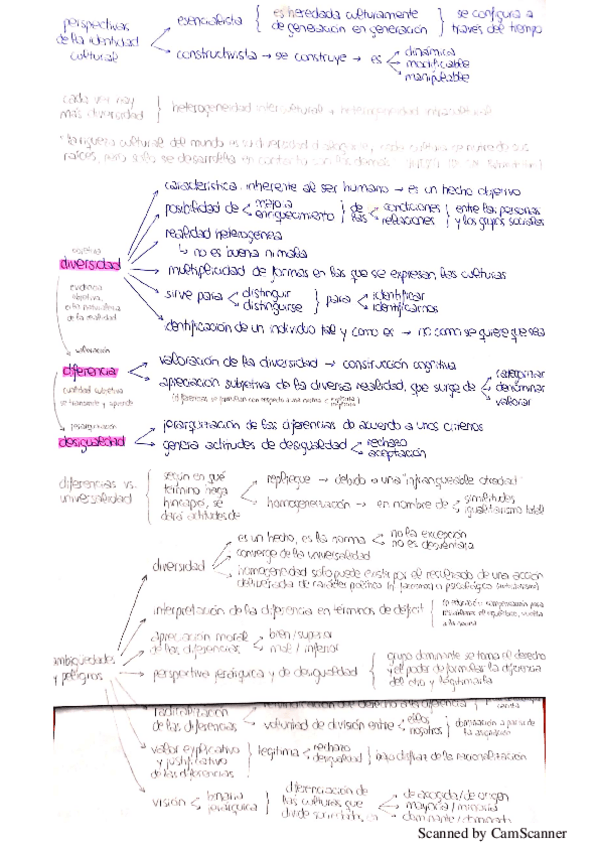 perspectivas de la identidad cultural
esencialista { es heredada culturamente de generación en generación } se configura a través del tiempo
constructivista → se construye → es dinámica modificable manipulable
cada vez hay más diversidad } heterogeneidad intercultural + heterogeneidad intracultural
"la riqueza cultural del mundo es su diversidad
raíces, pero solo se desarrolla en contacto con las demás"
característica inherente al ser humano → es un hecho objetivo
posibilidad de mejora enriquecimiento } de las condiciones relaciones } entre las personas y los grupos sociales
realidad heterogénea
↳ no es buena ni mala
diversidad
multiplicidad de formas en las que se expresan las culturas
sirve para distinguir distinguirse } para identificar identificarnos
identificación de un individuo tal y como es → no como se quiere que sea
valoración
diferencia
valoración de la diversidad → construcción cognitiva
apreciación subjetiva de la diversa realidad, que surge de categorizar denominar valorar
cualidad subjetiva
se transmite y aprende
jerarquización
desigualdad
jerarquización de las diferencias de acuerdo a unos criterios
genera actitudes de desigualdad rechazo aceptación
diferencias vs. universalidad
según en qué término haga hincapié, se dará actitudes de
repliegue → debido a una "infranqueable otredad"
homogeneización → en nombre de similitudes igualitarismo total
ambigüedades y peligros
diversidad
es un hecho, es la norma no la excepción no es desventaja
converge de la universalidad
homogeneidad solo puede existir por el resultado de una acción
deliberada de carácter político o psicológico
interpretación de la diferencia en términos de déficit
apreciación moral de las diferencias bien/superior mal/inferior
perspectiva jerárquica y de desigualdad { grupo dominante se toma el derecho y el poder de formular la diferencia del otro y legitimarla
radicalización de las diferencias
voluntad de división entre ellos nosotros
valor explicativo y justificativo de las diferencias } legitima rechazo desigualdad } bajo disfraz de la racionalización
visión binaria jerárquica } diferenciación de las culturas que
de acogida/de origen
mayoría/minoría
dominante/dominada
Scanned by CamScanner